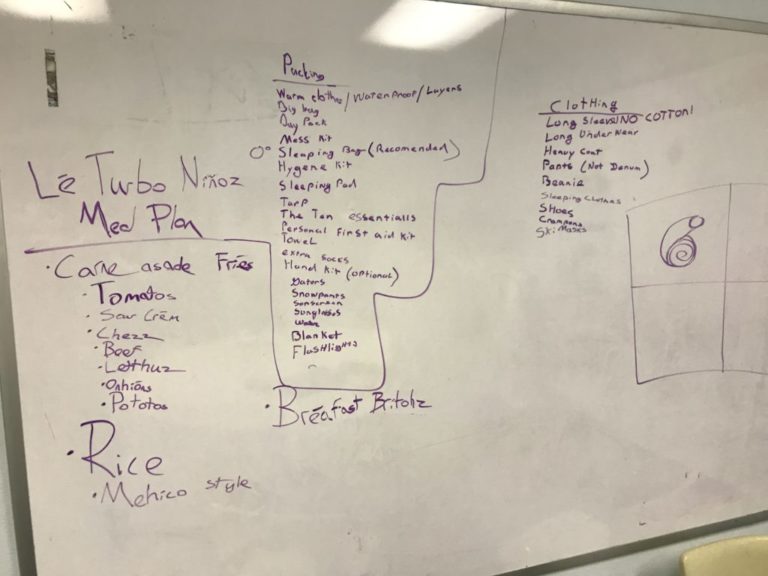 Lé Turbo Niñoz
Med Plan
• Carne asade Fries
• Tomatos
• Sour Crém
• Chezz
• Beef
• Letthuz
• Onhións
• Pototos
• Rice
• Mehico style
Packing
Warm clothes/Waterproof/Layers
Big bag
Day Pack
Mess Kit
0° Sleeping Bag (Recomended)
Hygene Kit
Sleeping Pad
Tarp
The Ten essentialls
Personal First aid Kit
Towel
extra socks
Hund Kit (optional)
Gators
Snowpants
Sunscreen
Sunglasses
Water
Blanket
Flashlights
• Bréafast Britohz
Clothing
Long Sleeve/NO COTTON!
Long Underwear
Heavy Coat
Pants (Not Denum)
Beanie
Sleeping Clothes
Shoes
Crampons
Ski Masks